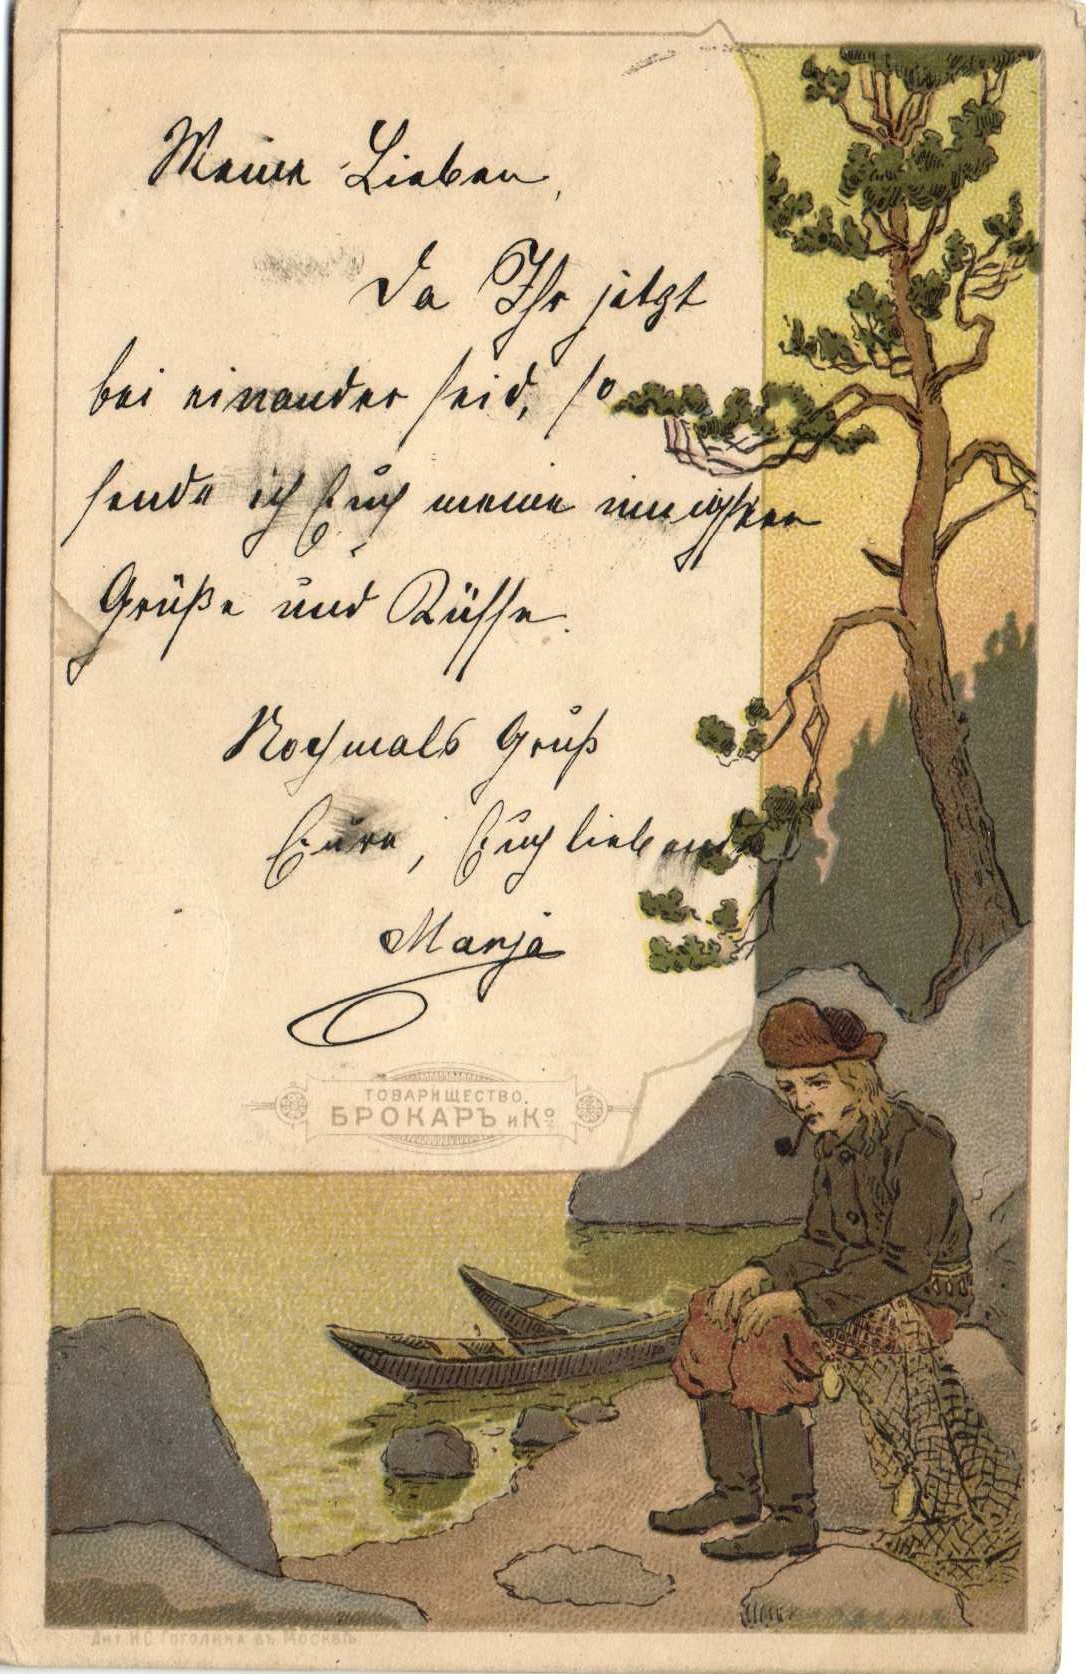 Meine Lieben,
Da Ihr jetzt
bei einander seid, so
sende ich Euch meine innigsten
Grüße und Küsse.
Nochmals Gruß
Eure, Euch liebende
Manja
ТОВАРИЩЕСТВО
БРОКАРЪ и Кº
Лит. И.С. Гоголина въ Москвѣ